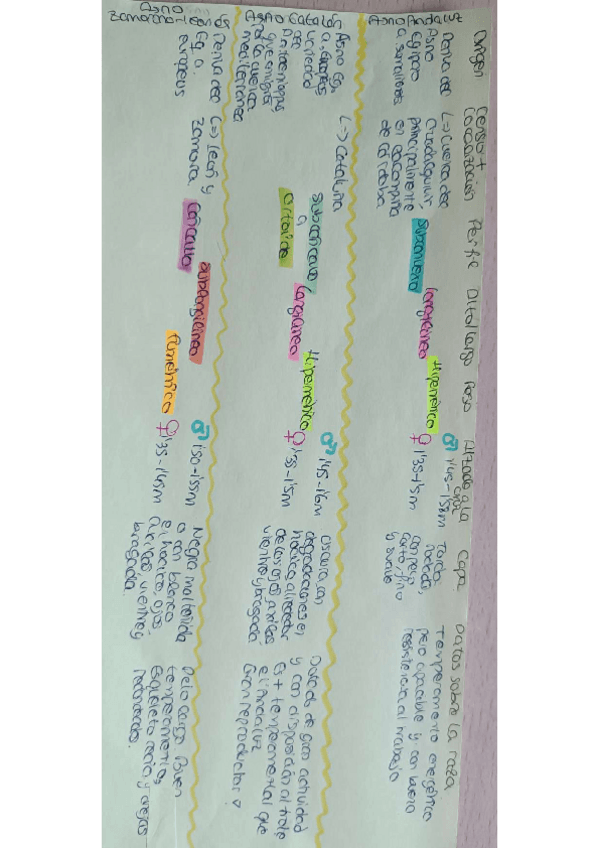 Origen
Censo + Localización
Perfil
Alto/largo
Peso
Alzada a la cruz
Capa
Datos sobre la raza
Asno Andaluz
Deriva del
Asno
Egipcio
a somaliensis
(-> Cuenca del
Guadalquivir,
principalmente
en la campiña
de Córdoba
Subconvexo
longilíneo
Hipermétrico
♂ 1'45-1'58m
♀ 1'35-1'5m
Torda
rodada,
con pelo
corto, fino
y suave
Temperamento energético
pero apacible y con buena
resistencia al trabajo
Asno Catalán
Asno con
a. europeus
variedad
que emigra
por la cuenca
mediterránea
(-> Cataluña
Subcóncavo
a
ortoide
longilíneo
Hipermétrico
♂ 1'45-1'6m
♀ 1'35-1'5m
Oscura, con
degradaciones en
hocico, alrededor
de los ojos, axilas
vientre y bragada
Dotado de gran actividad
y con disposición al trote
Es + temperamental que
el Andaluz
Gran reproductor ♡
Asno
Zamorano-Leonés
Deriva del
Eq. a.
europeus
(-> León y
Zamora
cóncavo
sublongilíneo
eumétrico
♂ 1'50-1'55m
♀ 1'35-1'45m
Negra mal teñida
o con blanco
en hocico, ojos,
axilas, vientre y
bragada.
Pelo largo. Buen
temperamento,
esqueleto recio y orejas
redondeadas.